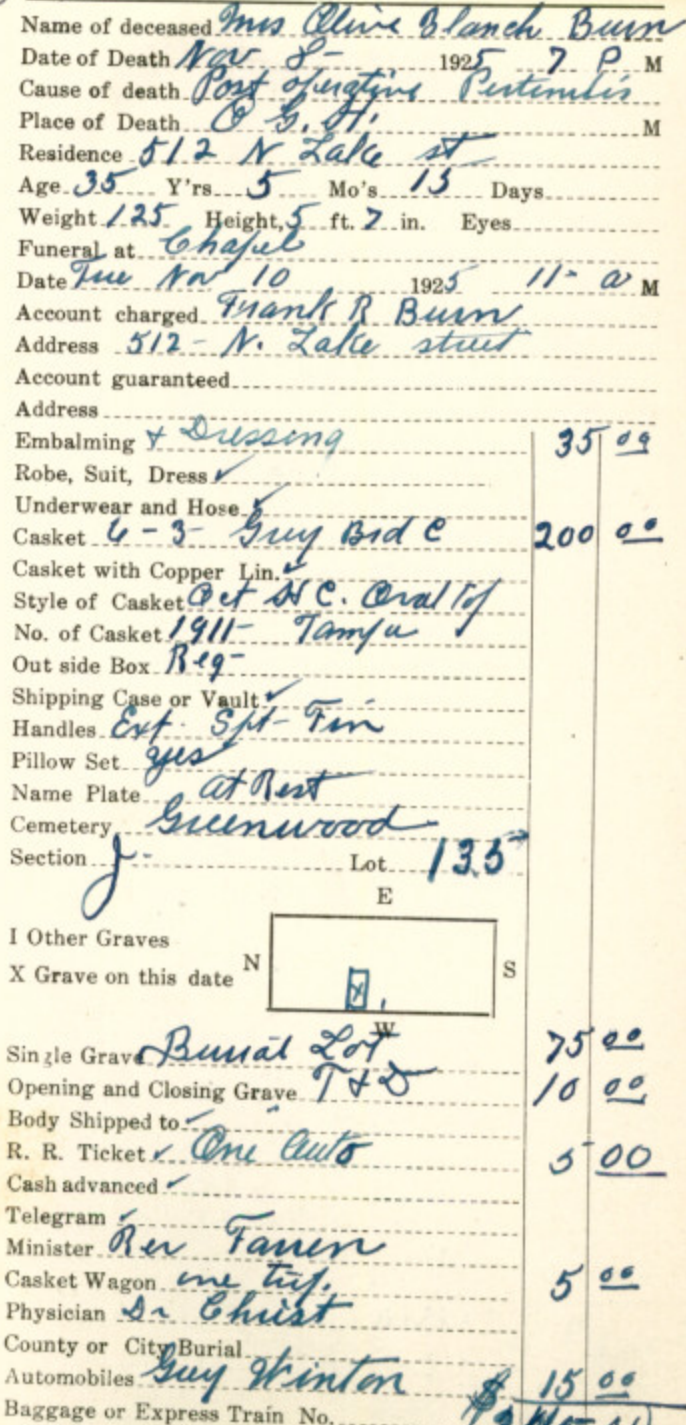 Name of deceased Mrs Olive Blanch Burn
Date of Death Nov 8- 1925 7 P M
Cause of death Post operative
Place of Death O G. H. M
Residence 512 N Lake st
Age 35 Y'rs 5 Mo's 15 Days
Weight 125 Height, 5 ft. 7 in. Eyes
Funeral at Chapel
Date Tue Nov 10 1925 11- a M
Account charged Frank R Burn
Address 512- N. Lake street
Account guaranteed
Address
Embalming & Dressing 35 00
Robe, Suit, Dress ✓
Underwear and Hose ✓
Casket 6-3- Grey Brd C 200 00
Casket with Copper Lin. ✓
Style of Casket Oct H C. Oval Top
No. of Casket 1911- Tampa
Out side Box Reg-
Shipping Case or Vault ✓
Handles Ext. Fin
Pillow Set yes
Name Plate at Rest
Cemetery Greenwood
Section J- Lot 135
E
I Other Graves
X Grave on this date N X S
W
Single Grave Burial Lot 75 00
Opening and Closing Grave T & D 10 00
Body Shipped to ✓ "
R. R. Ticket ✓ One Auto 5 00
Cash advanced ✓
Telegram ✓
Minister Rev Farren
Casket Wagon one trip. 5 00
Physician Dr Christ
County or City Burial
Automobiles Guy Winton $ 15 00
Baggage or Express Train No.